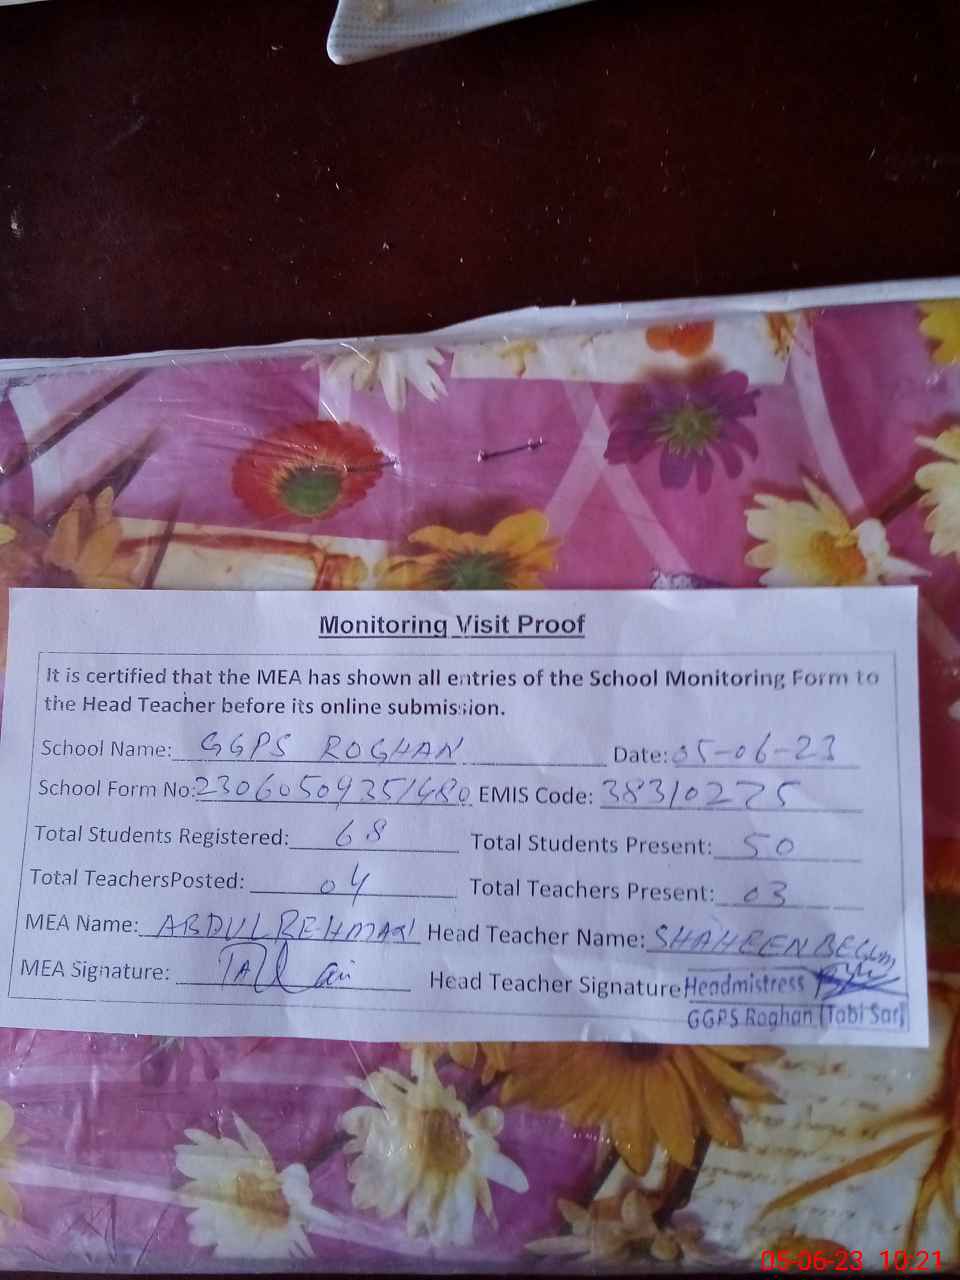 Monitoring Visit Proof
It is certified that the MEA has shown all entries of the School Monitoring Form to
the Head Teacher before its online submission.
School Name: GGPS ROGHAN Date: 05-06-23
School Form No: 23060509351480 EMIS Code: 38310275
Total Students Registered: 68 Total Students Present: 50
Total TeachersPosted: 04 Total Teachers Present: 03
MEA Name: ABDUL REHMAN Head Teacher Name: SHAHEEN BEGUM
MEA Signature: Head Teacher Signature Headmistress
GGPS Roghan (Tabi Sar)
05-06-23 10:21